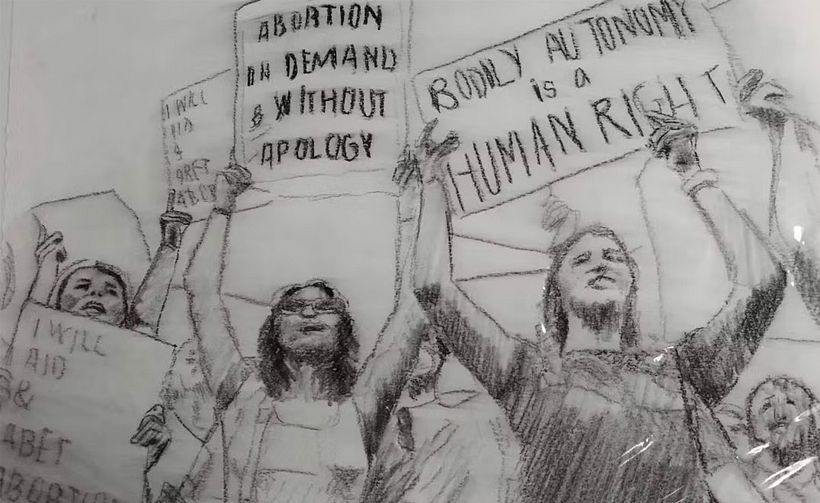 I WILL
AID
&
ABET
ABOR
ABORTION
ON DEMAND
& WITHOUT
APOLOGY
BODILY AUTONOMY
is a
HUMAN RIGHT
I WILL
AID
&
ABET
ABORTIO